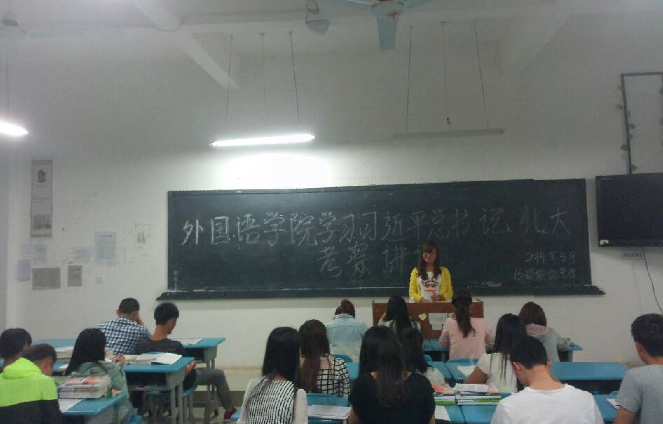 外国语学院学习习近平总书记北大
考察讲
2014年5月